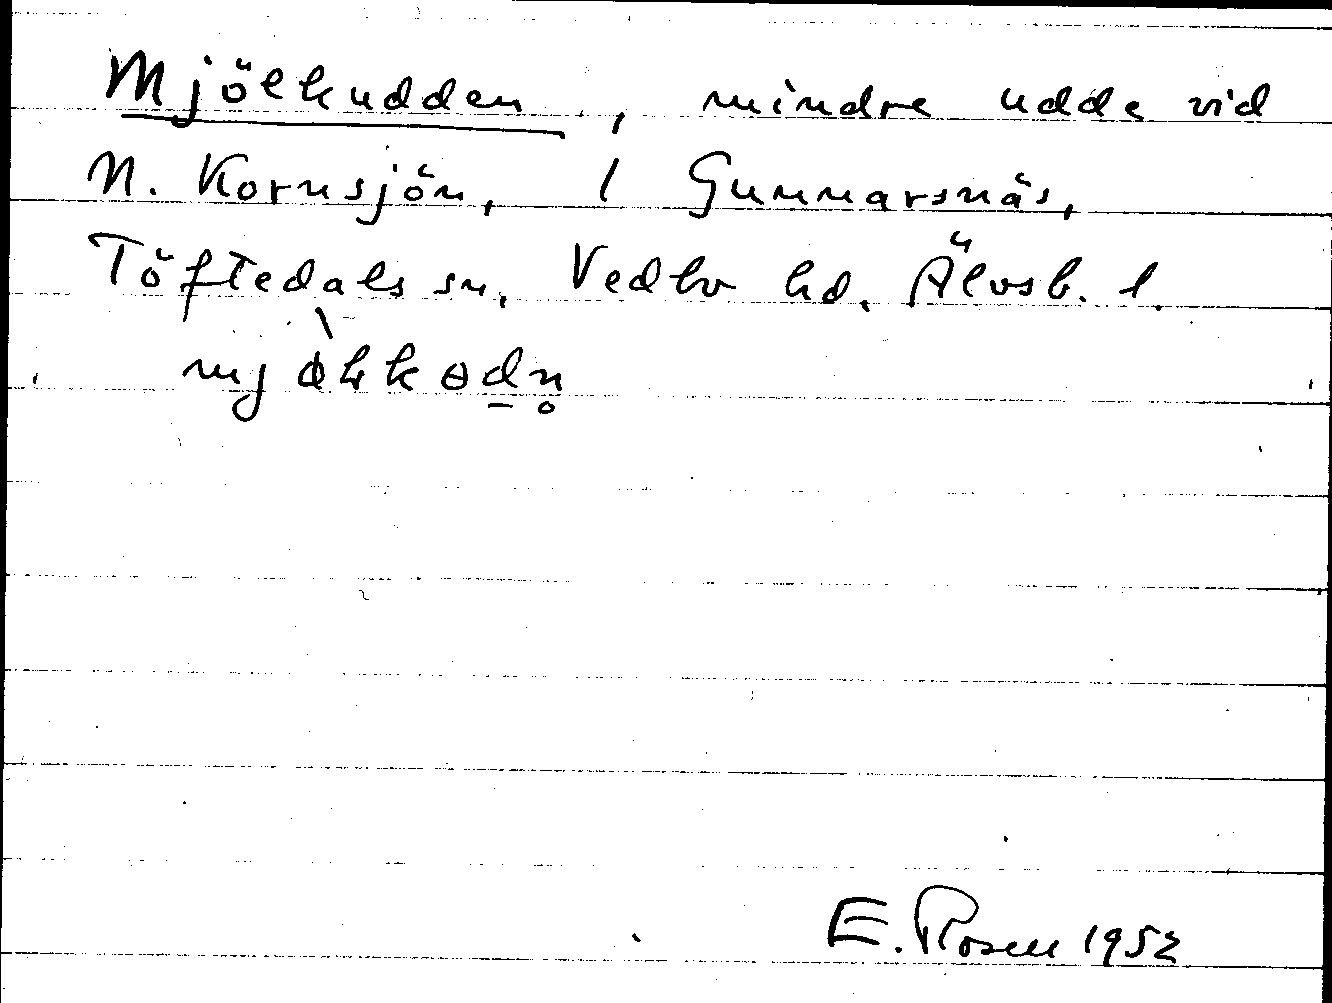 Mjölkudden, mindre udde vid
N. Kornsjön, 1 Gunnarsnäs,
Töftedals sn, Vedbo hd. Älvsb. l.
E. Rosen 1952